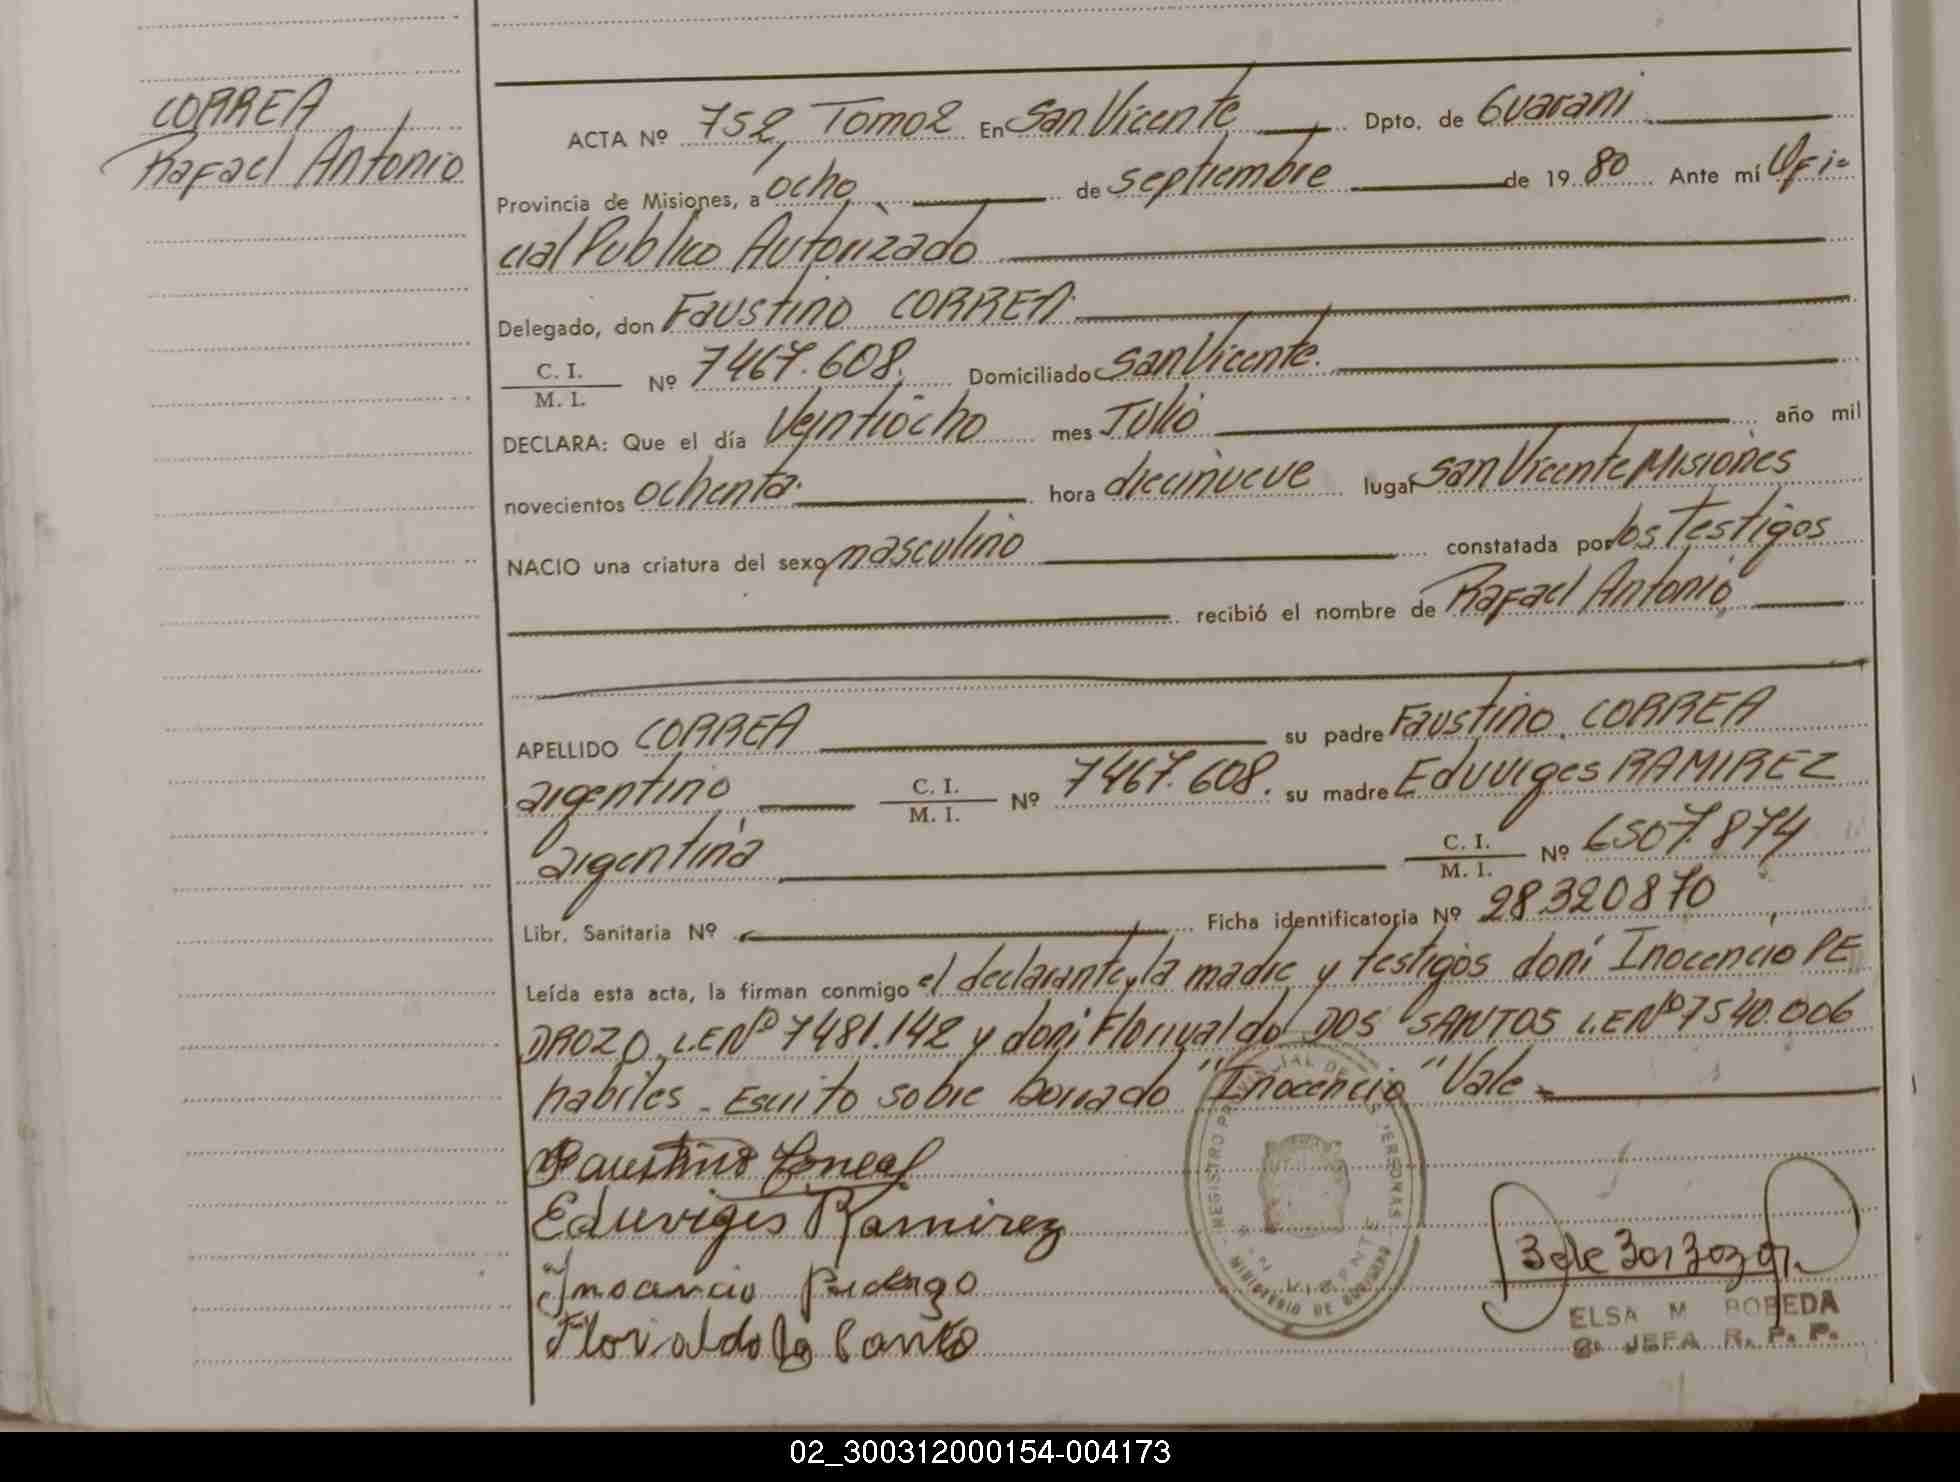 CORREA
Rafael Antonio
ACTA Nº 752, Tomo 2 En San Vicente Dpto. de Guarani
Provincia de Misiones, a ocho de septiembre de 1980 Ante mí Ofi-
cial Publico Autorizado
Delegado, don Faustino CORREA.
C. I.
M. I. Nº 7467.608. Domiciliado San Vicente.
DECLARA: Que el día Veintiocho mes Julio año mil
novecientos ochenta. hora diecinueve lugar San Vicente Misiones
NACIO una criatura del sexo masculino constatada por los Testigos
recibió el nombre de Rafael Antonio
APELLIDO CORREA su padre Faustino CORREA
argentino C. I.
M. I. Nº 7467.608. su madre Eduviges RAMIREZ
argentina C. I.
M. I. Nº 6507.874
Libr. Sanitaria Nº Ficha identificatoria Nº 28320870
Leída esta acta, la firman conmigo el declarante, la madre y testigos doni Inocencio PE
DROZO, L.E Nº 7481.142 y doni Florivaldo DOS SANTOS L.E Nº 7540.006
habiles - Escrito sobre borrado "Inocencio" Vale
Faustino
Eduviges Ramirez
Inocencio
Florivaldo
REGISTRO PROVINCIAL DE LAS PERSONAS
SAN VICENTE
MINISTERIO DE GOBIERNO
ELSA M BOBEDA
2ª JEFA R. P. P.
02_300312000154-004173